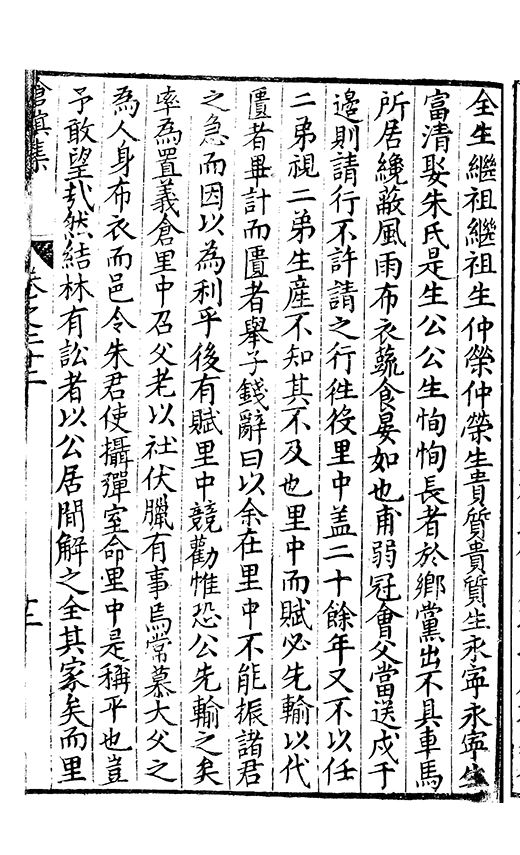 全生繼祖繼祖生仲榮仲榮生貴質貴質生永寧永寧生
富清娶朱氏是生公公生恂恂長者於鄉黨出不具車馬
所居纔蔽風雨布衣蔬食晏如也甫弱冠會父當送戍于
邊則請行不許請之行徃役里中盖二十餘年又不以任
二弟視二弟生産不知其不及也里中而賦必先輸以代
匱者畢計而匱者舉子錢辭曰以余在里中不能振諸君
之急而因以為利乎後有賦里中競勸惟恐公先輸之矣
率為置義倉里中召父老以社伏臘有事焉常慕大父之
為人身布衣而邑令朱君使攝彈室命里中是稱平也豈
予敢望㢤然結林有訟者以公居間解之全其家矣而里
滄溟集
卷之二十二
十二